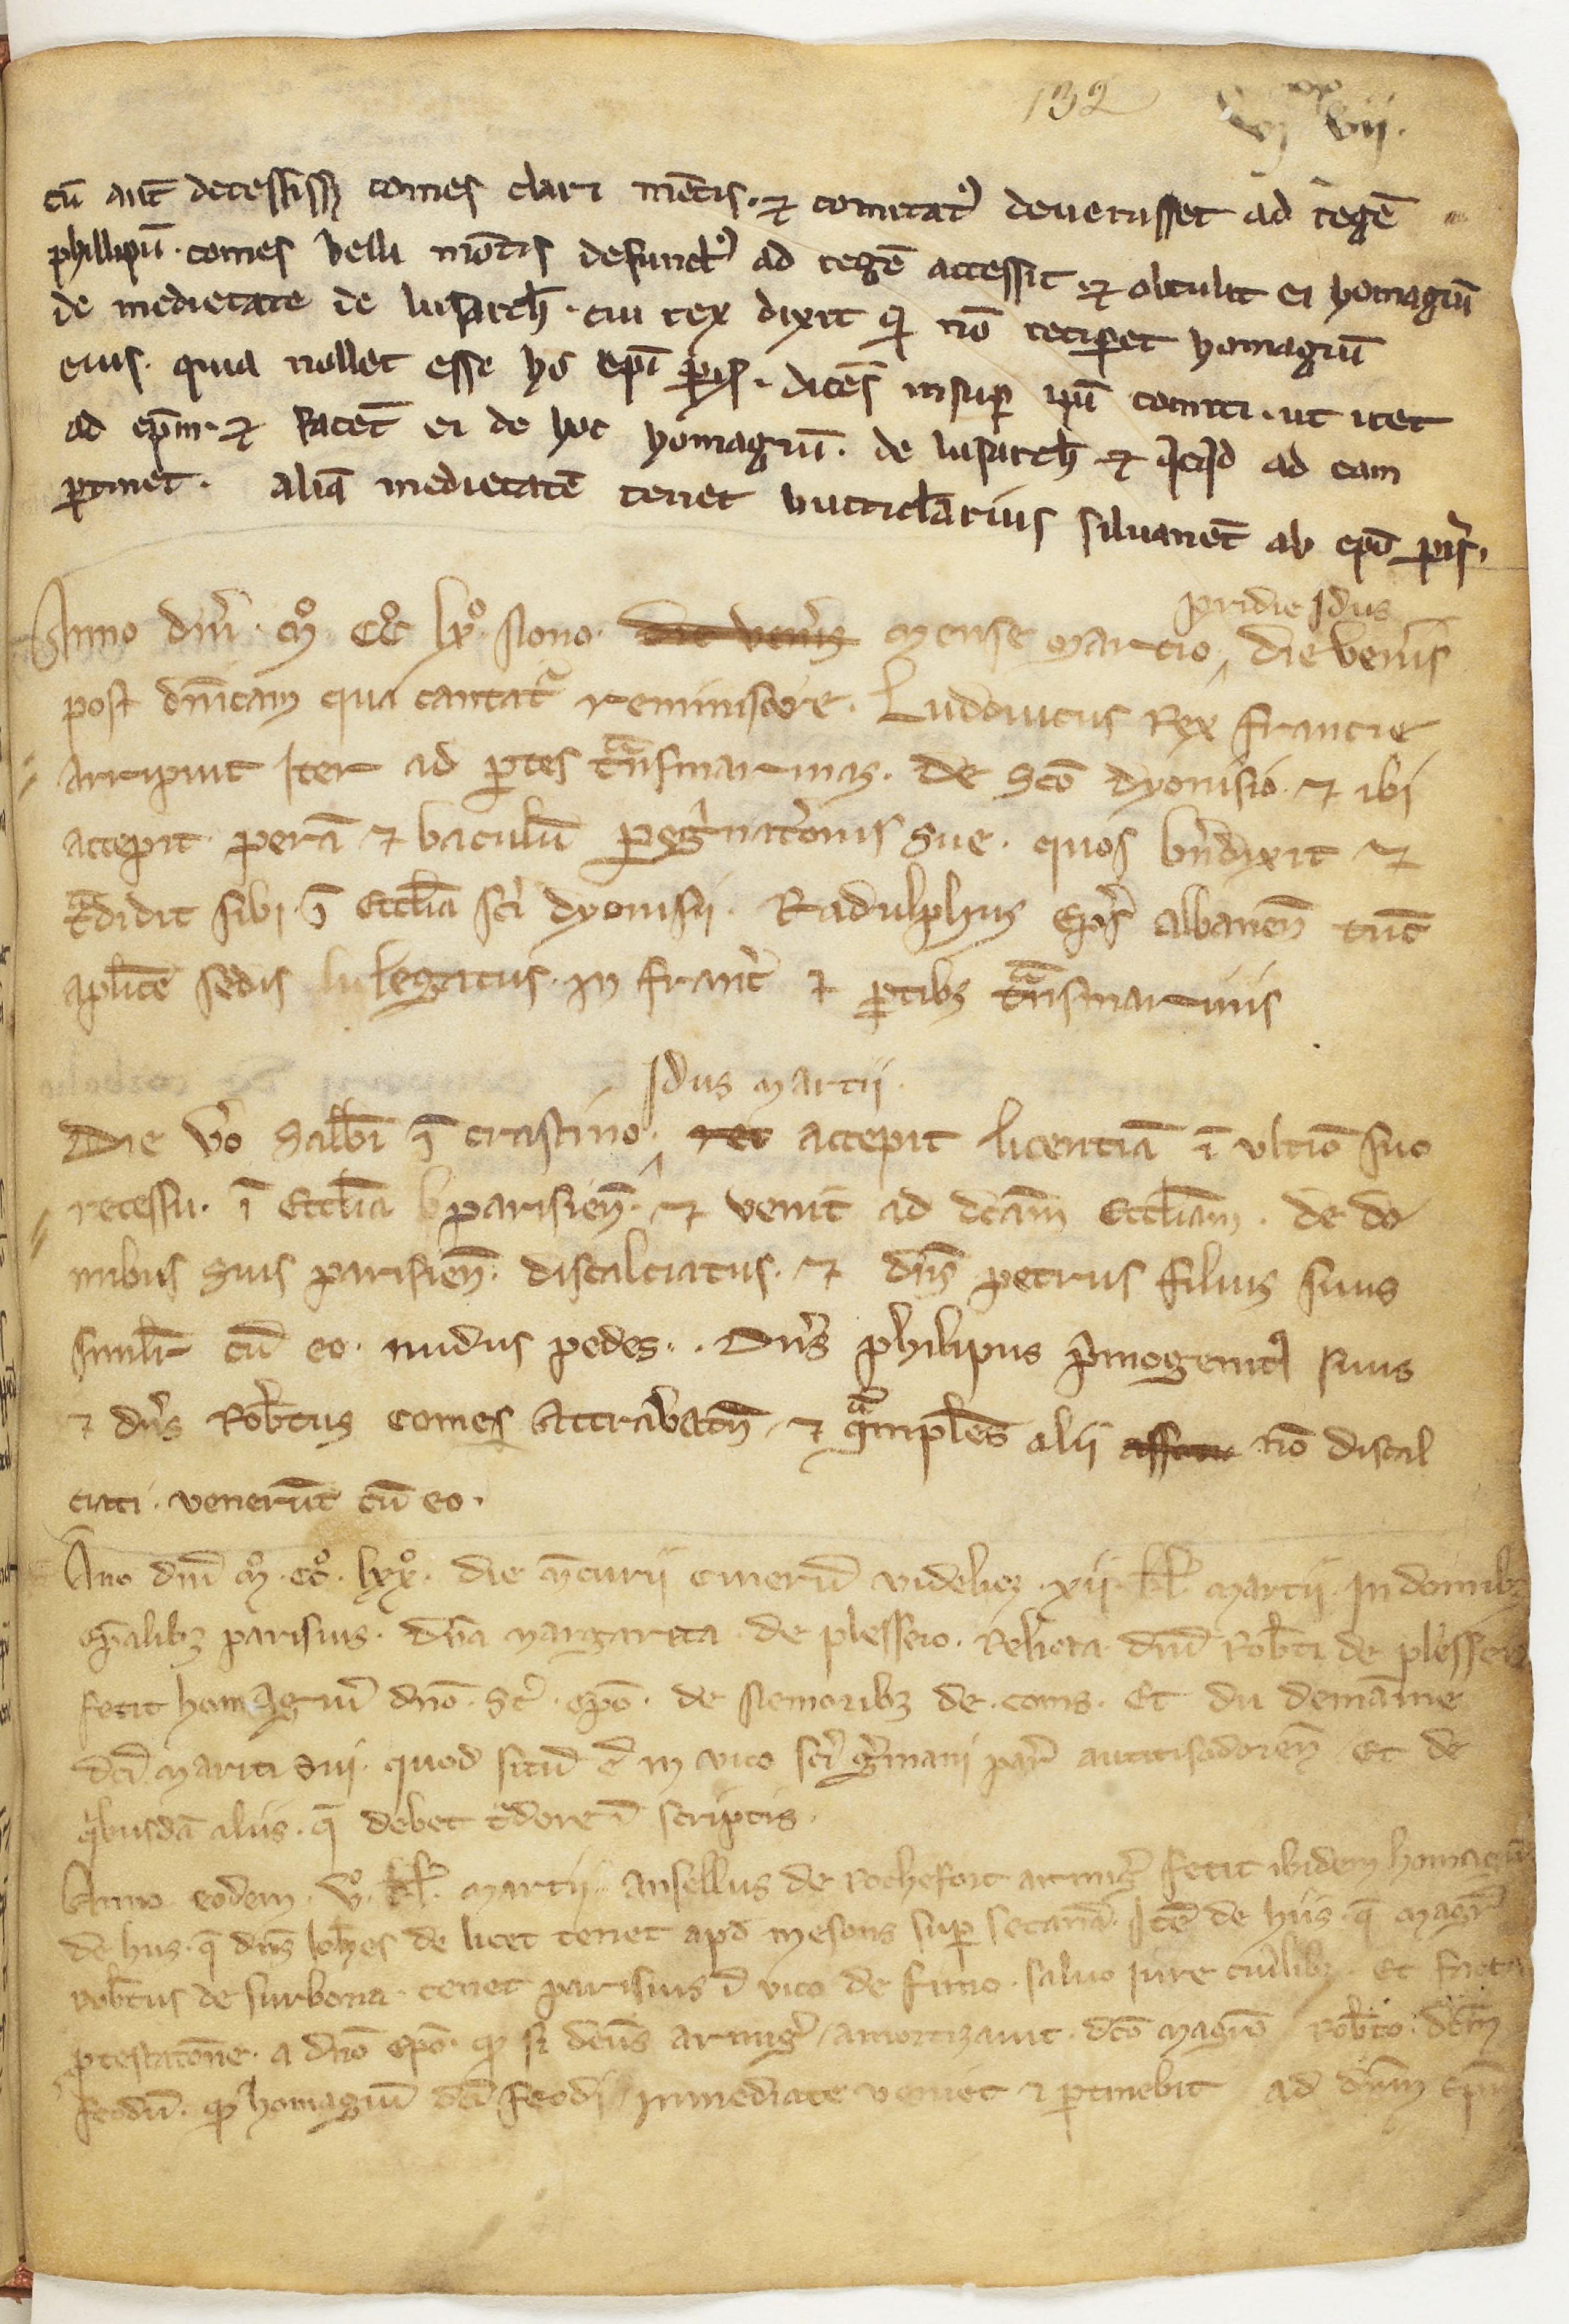 132 vi xx vii.
cū aut̄ decessissꝫ comes clari mōtis. ⁊ comitatꝰ devenisset ad regē
phillipū. comes belli mōtis defunctꝰ ad regē accessit ⁊ obtulit ei homagiū
de medietate de lusarch̄. cui rex dixit ꝙ nō reciꝑet homagiū
eius. quia nollet esse hō ep̄i par̄. dicēs insuꝑ ip̄i comiti. ut iret
ad ep̄m. ⁊ facet̄ ei de hoc homagiū. de lusarch̄ ⁊ qͥcqͥd ad eam
ꝑtinet. aliā medietatē tenet buticl̄arius silvanet̄ ab ep̄o par̄.
pridie Idus
Anno dn̄i. mͦ. ccͦ lxͦ. Nono. die ven̄is mense marcio, die ven̄is
post dn̄icam qua cantatͬ reminiscere. Ludovicus Rex francie
arripuit Iter ad ꝑtes tͣnsmarinas. de Sc̄o dyonisio. ⁊ ibi
accepit perā ⁊ baculū ꝑegͥnat̄onis sue. quos bn̄dixit ⁊
tͣdidit sibi. ī Eccl̄ia sc̄i dyonisii. Radulphus Ep̄s albanen̄ tūc
apl̄ice sedis legatus. in franc̄ ⁊ ꝑtibꝫ tͣnsmarinis
Idus martii.
Die v̄o Sabb̄i ī crastino, rex accepit licentiā ī ultīo suo
recessu. ī Eccl̄ia parisien̄. ⁊ venit ad dc̄am Eccl̄iam. de do
mibus suis parisien̄. discalciatus. ⁊ dn̄s petrus filius suus
simil̄r cū eo. nudus pedes.. Dn̄s philipus pͥmogenitꝰ suus
⁊ dn̄s Rob̄tus comes Attrabatn̄. ⁊ qͣmpl̄es alii nō discal
ciati. venerūt cū eo.
Āno dn̄i mͦ. ccͦ. lxxͦ. die m̄curii cinerū videlicꝫ. xii. kl̄. martii. In domibꝫ
ep̄alibꝫ parisius. dn̄a margarita. de plesseio. Relicta. dn̄i Rob̄ti de plesseio
fecit homagiū dn̄o. St̄. ep̄o. de Nemoribꝫ de. coms. Et du demaine
dc̄i mariti sui. quod sitū ē in vico sc̄i ḡmani par̄ autisiodoren̄ Et de
qͥbusdā aliis. q̄ debet tͣdere ī scriptis.
Anno eodem. vͦ. kl̄. martii. Ansellus de Rochefort armiḡ fecit ibidem homagiū
de hiis. q̄ dn̄s Ioh̄es de licet tenet apd̄ mesons suꝑ secanā. Itē de hiis. q̄ magr̄
rob̄tus de surbona. tenet parisius ī vico de fimo. salvo iure cuilibꝫ. Et fact̄
ꝓtestat̄one. a dn̄o ep̄o. ꝙ si dc̄us armiḡ amortizavit. dc̄o magr̄o Rob̄to. dc̄m
feodū. ꝙ homagiū dc̄i feodi inmediate veniet ⁊ ꝑtinebit ad dn̄m ep̄m